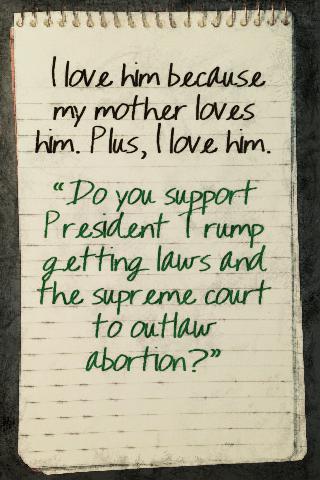 I love him because
my mother loves
him. Plus, I love him.
"Do you support
President Trump
getting laws and
the supreme court
to outlaw
abortion?"